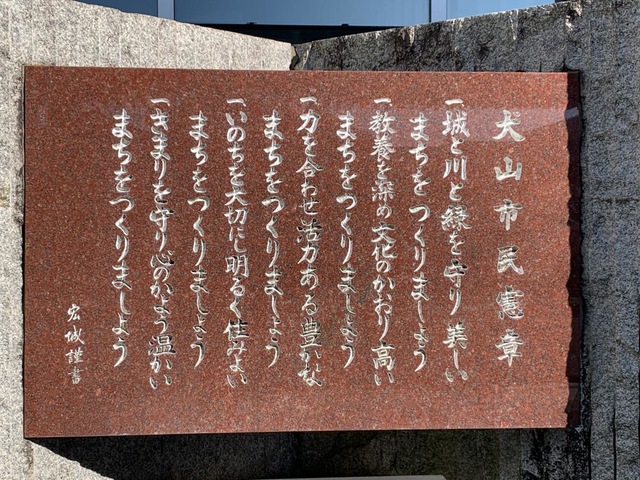 犬山市民憲章
一城と川と緑を守り美しい
まちをつくりましょう
一教養を深め文化のかおり高い
まちをつくりましょう
一力を合わせ活力ある豊かな
まちをつくりましょう
一いのちを大切に明るく住みよい
まちをつくりましょう
一きまりを守り心のかよう温かい
まちをつくりましょう
宏城謹書